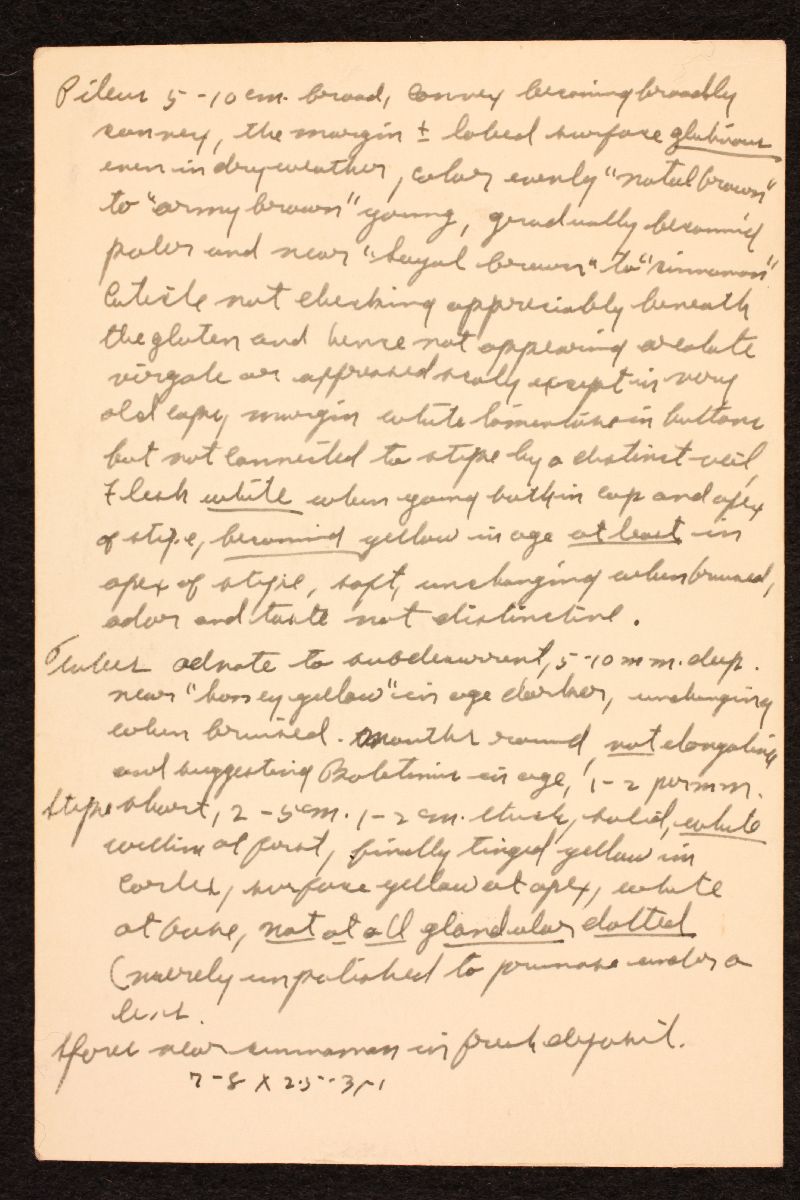 Pileus 5-10 cm. broad, convex becoming broadly
convex, the margin ± lobed surface glutinous
even in dry weather, color evenly "natal brown"
to "army brown" young, gradually becoming
paler and near "sayal brown" to "cinnamon"
Cuticle not checking appreciably beneath
the gluten and hence not appearing areolate
virgate or appressed scaly except in very
old caps, margin white tomentose in buttons
but not connected to stipe by a distinct veil,
Flesh white when young both in cap and apex
of stipe, becoming yellow in age at least in
apex of stipe, soft, unchanging when bruised,
odor and taste not distinctive.
Tubes adnate to subdecurrent, 5-10 mm. deep.
near "honey yellow" in age darker, unchanging
when bruised. mouths round, not elongating
and suggesting Boletinus in age, 1-2 per mm.
Stipe short, 2-5 cm. 1-2 cm. thick, solid, white
within at first, finally tinged yellow in
cortex, surface yellow at apex, white
at base, not at all glandular dotted
(merely unpolished to pruinose under a
lens.
Spores near cinnamon in fresh deposit.
7-8 X 2.5-3µ